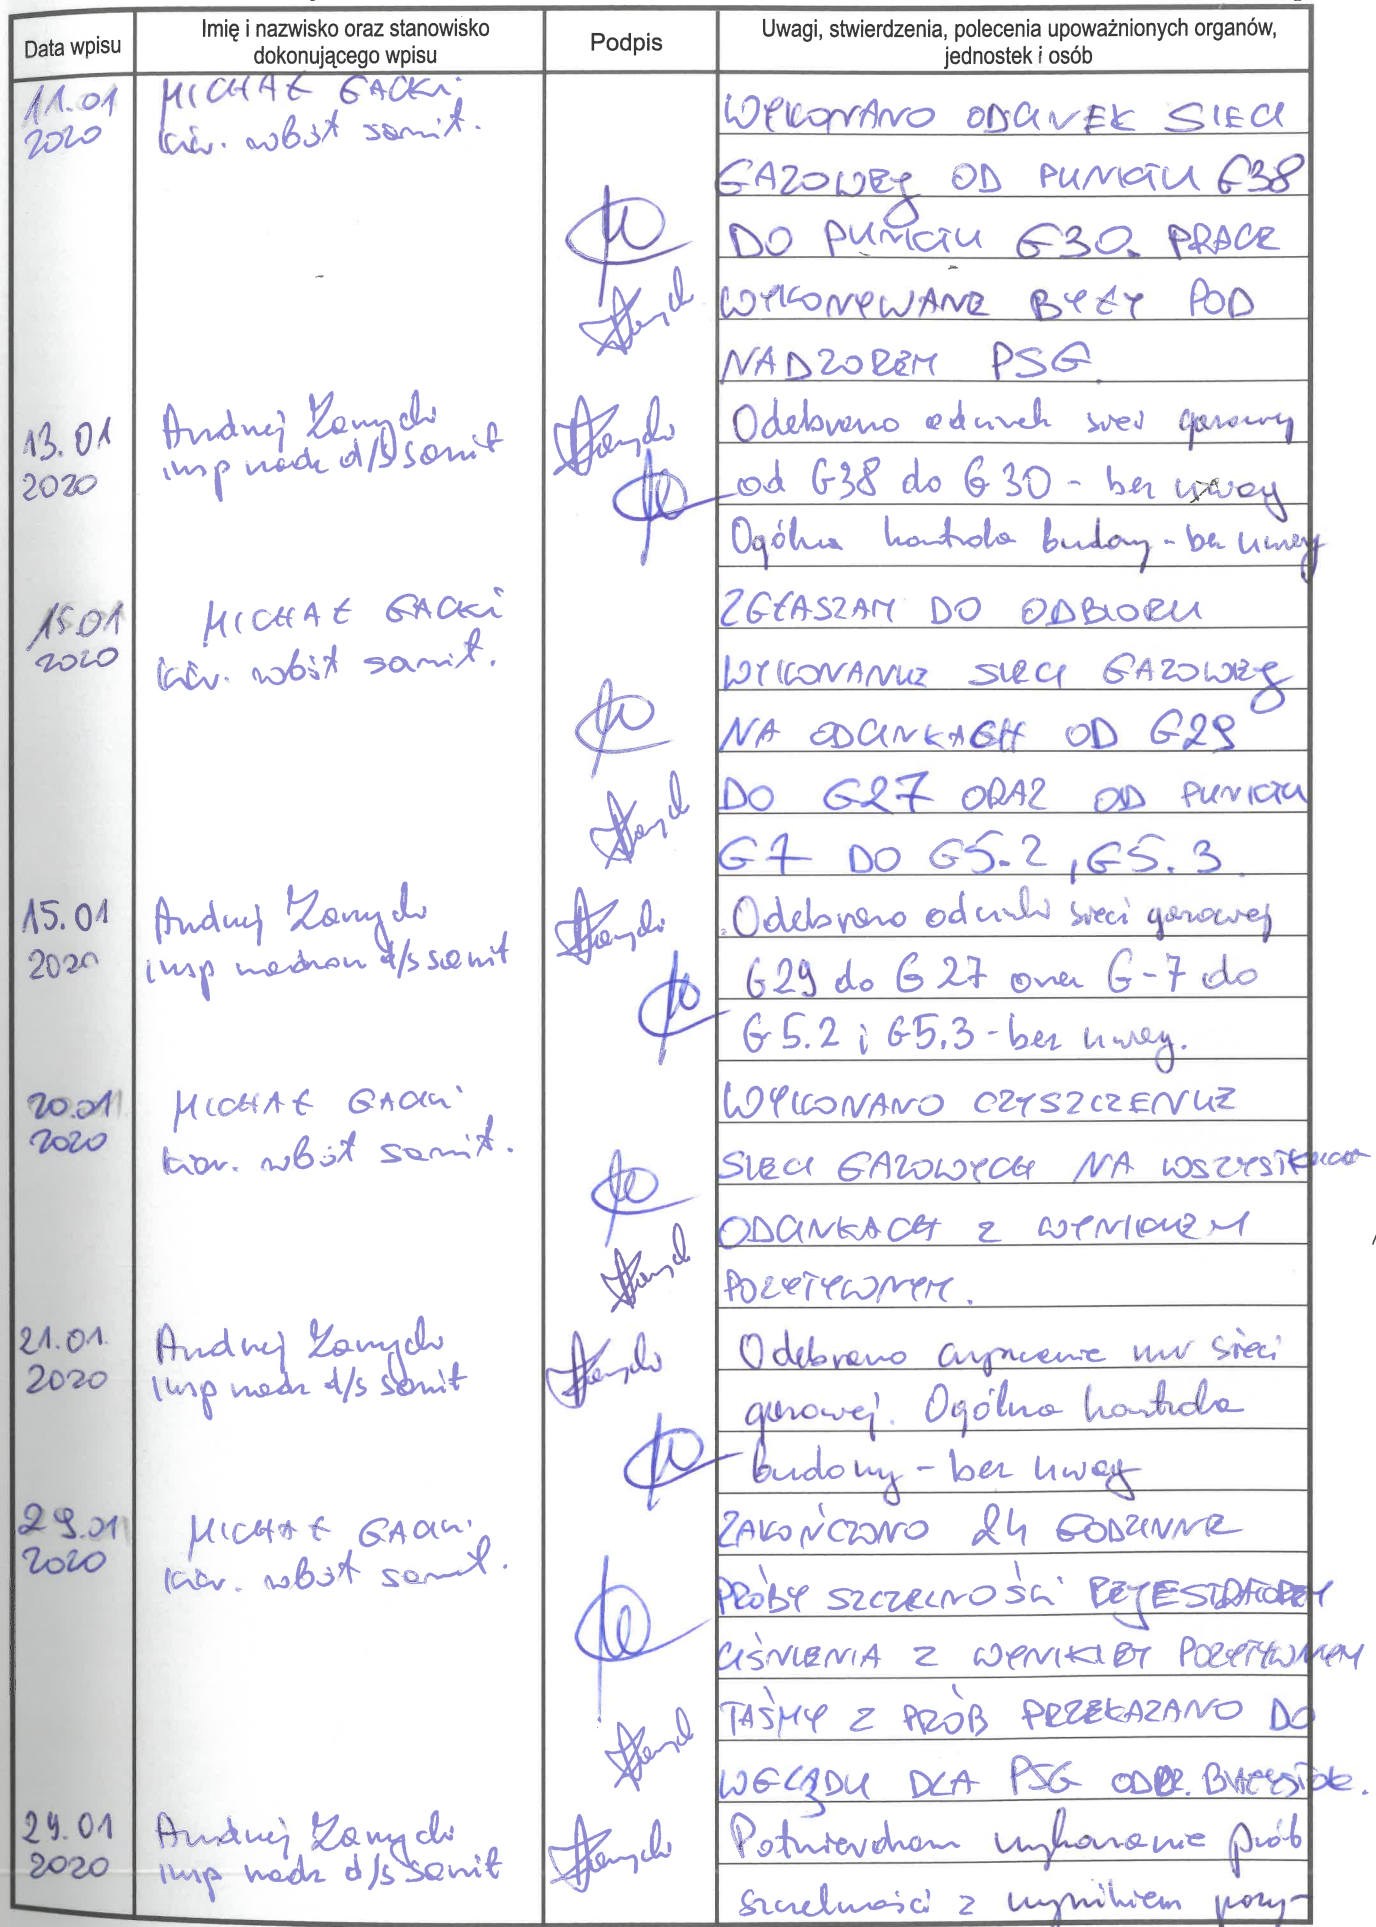 Data wpisu
Imię i nazwisko oraz stanowisko
dokonującego wpisu
Podpis
Uwagi, stwierdzenia, polecenia upoważnionych organów,
jednostek i osób
11.01
2020
MICHAŁ GACKI
kier. robót sanit.
WYKONANO ODCINEK SIECI
GAZOWEJ OD PUNKTU G38
DO PUNKTU G30. PRACE
WYKONYWANE BYŁY POD
NADZOREM PSG
13.01
2020
Andrzej
insp nadz d/s sanit
Odebrano odcinek sieci gazowej
od G38 do G30 - bez uwag
Ogólna kontrola budowy - bez uwag
15.01
2020
MICHAŁ GACKI
kier. robót sanit.
ZGŁASZAM DO ODBIORU
WYKONANIE SIECI GAZOWEJ
NA ODCINKACH OD G29
DO G27 ORAZ OD PUNKTU
G7 DO G5.2, G5.3
15.01
2020
Andrzej
insp nadzoru d/s sanit
Odebrano odcinki sieci gazowej
G29 do G27 oraz G-7 do
G5.2 i G5.3 - bez uwag.
20.01
2020
MICHAŁ GACKI
kier. robót sanit.
WYKONANO CZYSZCZENIE
SIECI GAZOWYCH NA WSZYSTKICH
ODCINKACH Z WYNIKIEM
POZYTYWNYM.
21.01.
2020
Andrzej
insp nadz d/s sanit
Odebrano czyszczenie ww sieci
gazowej. Ogólna kontrola
budowy - bez uwag
29.01
2020
MICHAŁ GACKI
kier. robót sanit.
ZAKOŃCZONO 24 GODZINNE
PRÓBY SZCZELNOŚCI REJESTRATOREM
CIŚNIENIA Z WYNIKIEM POZYTYWNYM
TAŚMY Z PRÓB PRZEKAZANO DO
WGLĄDU DLA PSG ODDZ. BIAŁYSTOK.
29.01
2020
Andrzej
insp nadz d/s sanit
Potwierdzam wykonanie prób
szczelności z wynikiem pozy-